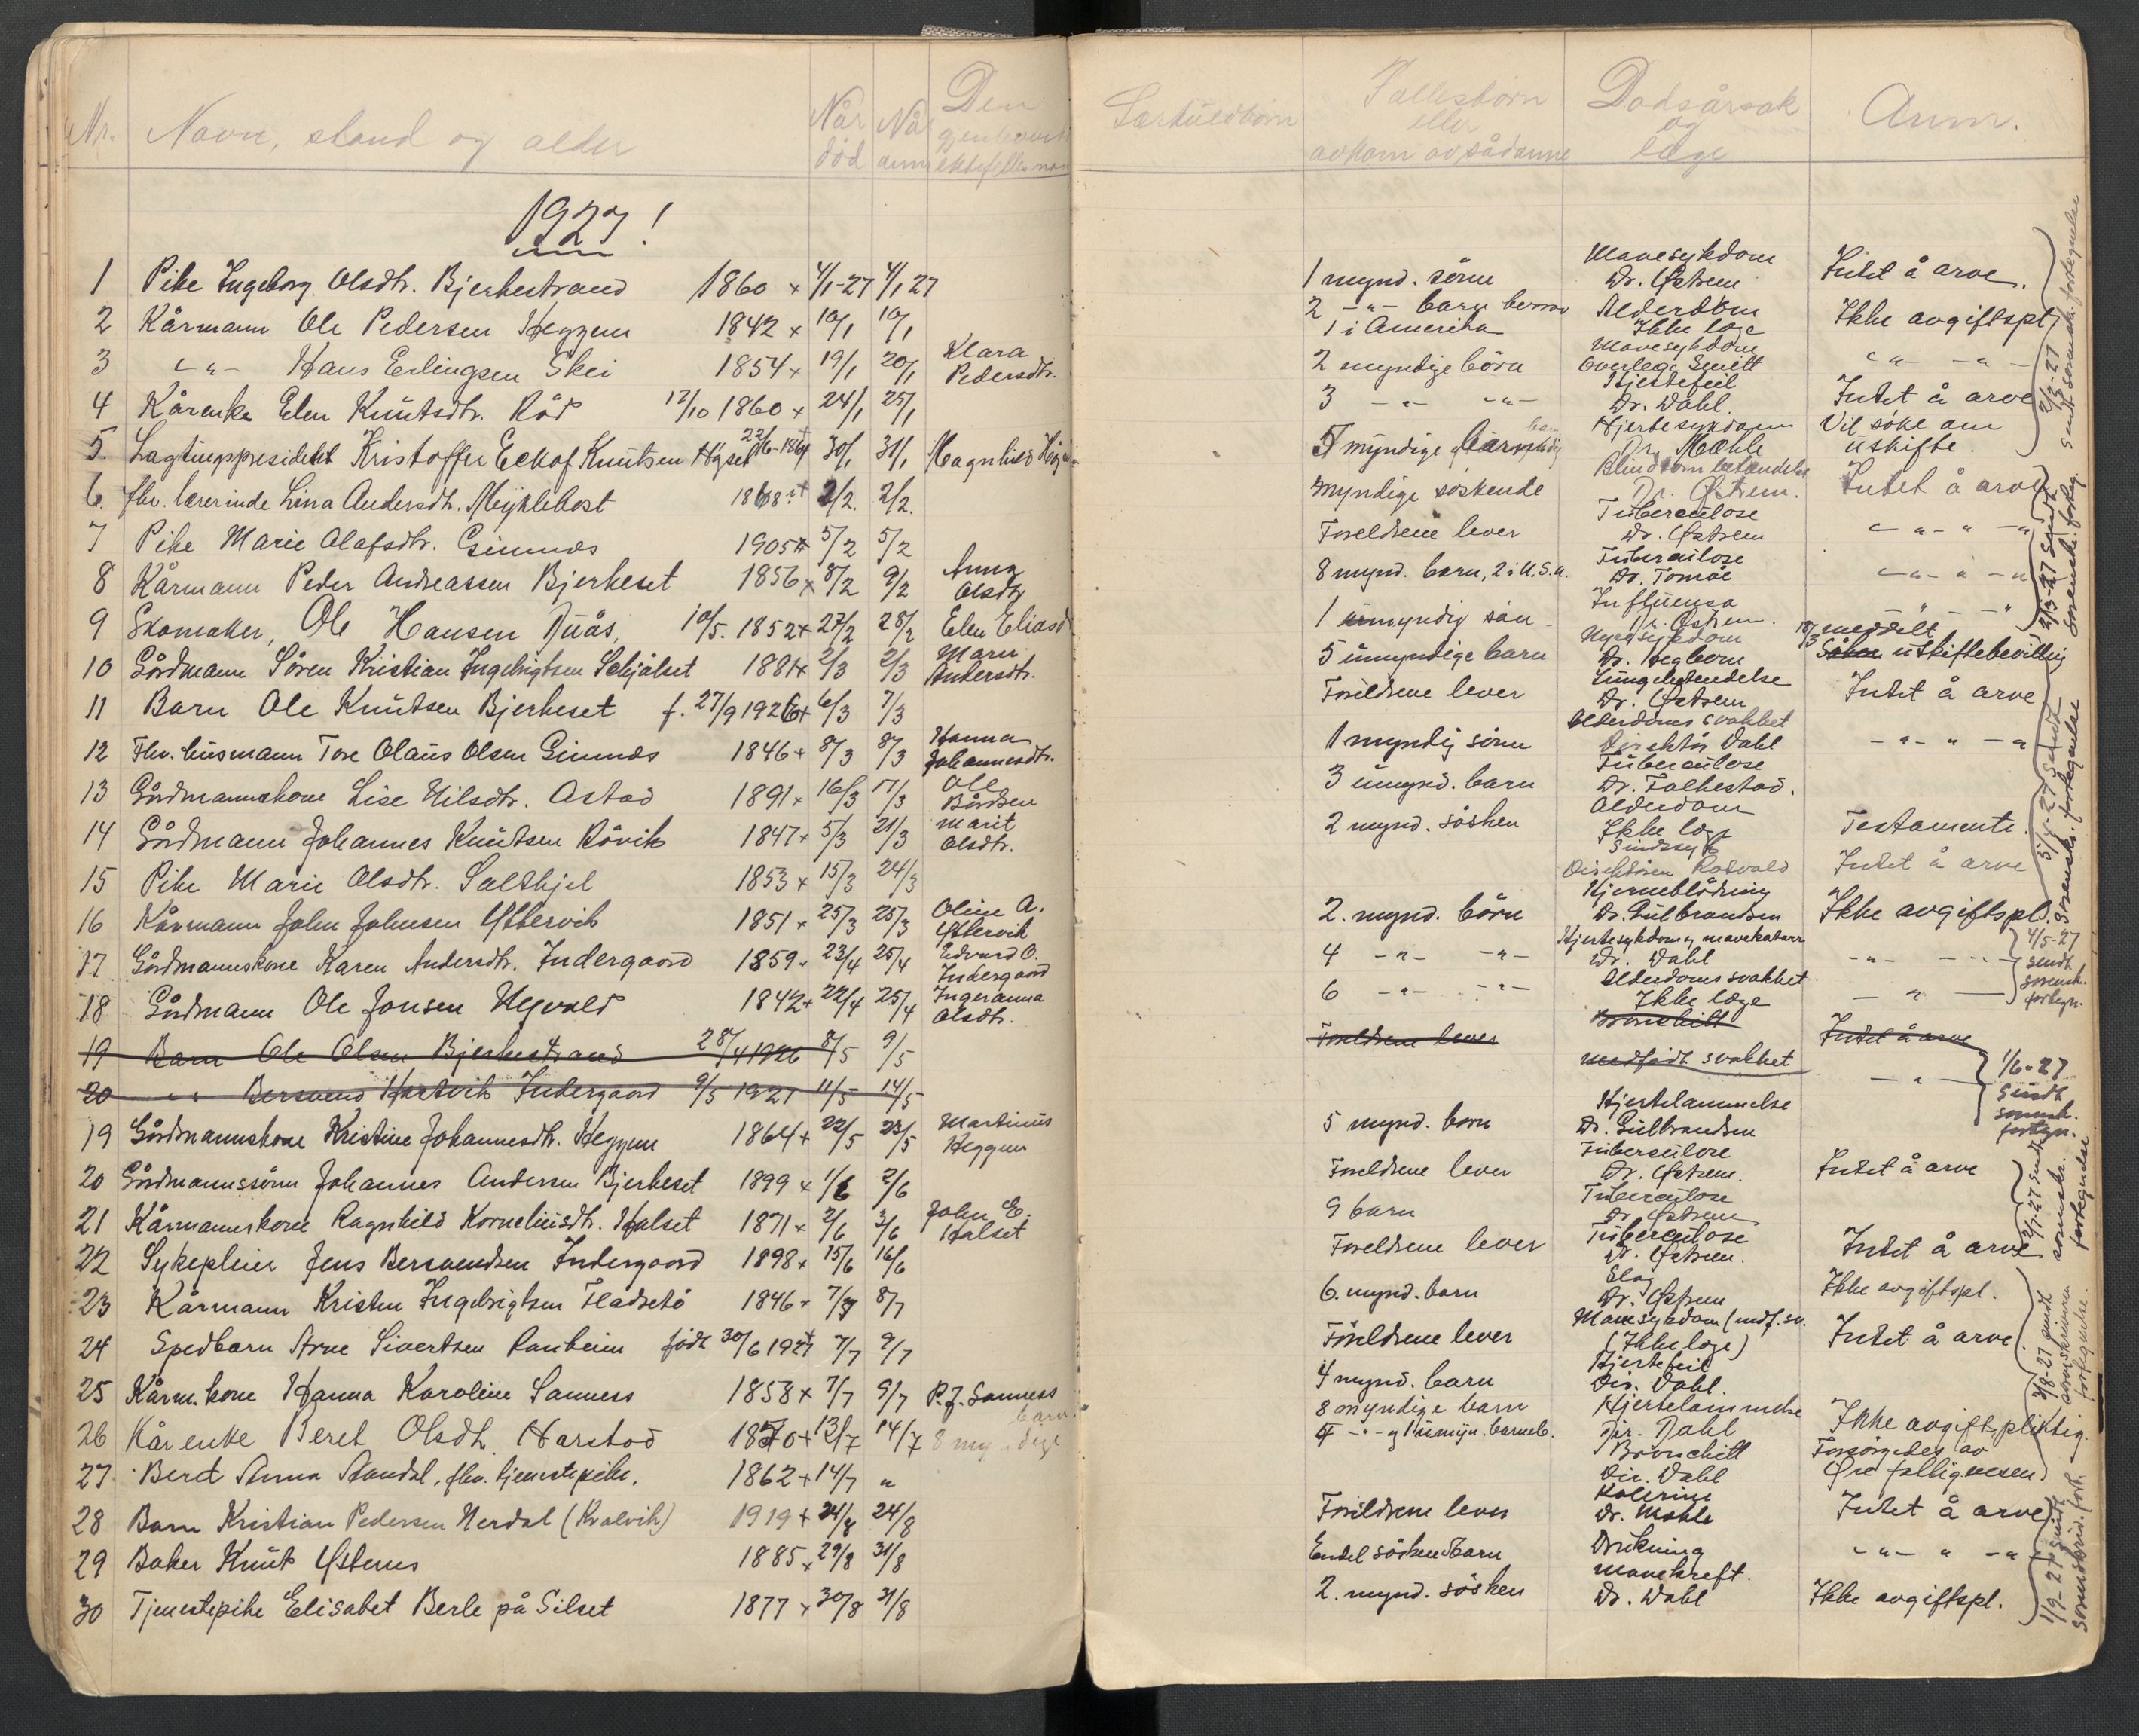 Nr. Navn, stand og alder Når død Når anm. Den gjenlevende ektefelles navn Særkuldbörn Fellesbörn eller avkom av sådanne Dødsårsak og læge Anm.
1927!
1 Pike Ingeborg Olsdtr. Bjerkestrand 1860 + 4/1-27 4/1 27 1 mynd. sönn Mavesykdom Dr. Östrem Intet å arve.
2 Kårmann Ole Pedersen Heggem 1842 + 10/1 10/1 2 -"- barn 1 i Amerika Alderdom Ikke læge Ikke avgiftspl.
3 -"- Hans Erlingsen Skei 1854 + 19/1 20/1 Klara Pedersdtr. 2 myndige börn Mavesykdom Overlege Smitt -"- -"-
4 Kårenke Elen Knutsdtr. Röd 12/10 1860 + 24/1 25/1 3 -"- -"- Hjertefeil Dr. Dahl. Intet å arve
5. Lagtingspresident Kristoffer Eckof Knutsen Höset 22/6-1864 + 30/1 31/1 Magnhild 5 myndige Hjertesykdom Dr. Mæhle Vil söke om uskifte.
6. fhv. lærerinde Lina Andersdtr. Myklebost 1868 + 2/2. 2/2. myndige söskende Blindtarmbetændelse Dr. Östrem. Intet å arve
7 Pike Marie Olafsdtr. Gimnes 1905 + 5/2 5/2 Foreldrene lever Tuberculose Dr. Östrem -"- " -"
8 Kårmann Peder Andreassen Bjerkeset 1856 + 8/2 9/2 Anna Olsdtr 8 mynd. barn, 2 i U.S.A. Tuberculose Dr. Tomöe -"- " -"
9 Skomaker, Ole Hansen Duås, 10/5. 1852 + 27/2 28/2 Elen Eliasd 1 umyndig sön Influensa Dr. Östrem. " "
10 Gårdmann Sören Kristian Ingebrigtsen Schjölset 1881 + 2/3 2/3 Maren Andersdtr. 5 umyndige barn Nyresykdom Dr. Hegbom 18/3 meddelt Söker uskiftebevilling
11 Barn Ole Knutsen Bjerkeset f. 27/9 1926 + 6/3 7/3 Foreldrene lever Lungebetendelse Dr. Östrem Intet å arve
12 Fhv. husmann Tore Olaus Olsen Gimnes 1846 + 8/3 8/3 Hanna Johannesdtr. 1 myndig sönn Alderdoms svakhet Direktör Dahl -"- " -"
13 Gårdmannskone Lise Nilsdtr. Astad 1891 + 16/3 17/3 Ole Bårdsen 3 umynd. barn Tuberculose Dr. Falkestad.
14 Gårdmann Johannes Knutsen Rövik 1847 + 5/3 21/3 Marit Olsdtr. 2 mynd. sösken Alderdom Ikke læge Testamente.
15 Pike Marie Olsdtr. Saltkjel 1853 + 15/3 24/3 Sindssyk Direktören Rotvold Intet å arve
16 Kårmann John Johnsen Yttervik 1851 + 25/3 25/3 Oline A. Yttervik 2. mynd. börn Hjerneblödning Dr. Gulbrandsen Ikke avgiftspl.
17 Gårdmannskone Karen Andersdtr. Indergaard 1859 + 23/4 25/4 Edvard O. Indergaard 4 -"- -"- Hjertesykdom og mavekatarr Dr. Dahl -"- -"-
18 Gårdmann Ole Jonsen Ugvald 1842 + 22/4 25/4 Ingeranna Olsdtr. 6 -"- -"- Alderdoms svakhet Ikke læge -"-
19 Barn Ole Olsen Bjerkestrand 28/4 1926 8/5 9/5 Foreldrene lever Bronchitt Intet å arve
20 -"- Bersvend Hartvik Indergaard 9/5 1927 11/5 14/5 medfödt svakhet -"-
19 Gårdmannskone Kristine Johannesdtr. Heggem 1864 + 22/5 23/5 Martinus Heggem 5 mynd. born Hjertelammelse Dr. Gulbrandsen
20 Gårdmannssönn Johannes Andersen Bjerkeset 1899 + 1/6 2/6 Foreldrene lever Tuberculose Dr. Östrem. Intet å arve
21 Kårmannskone Ragnhild Korneliusdtr. Halset 1871 + 2/6 3/6 John E. Halset 9 barn Tuberculose Dr. Östrem
22 Sykepleier Jens Bersvendsen Indergaard 1898 + 15/6 16/6 Foreldrene lever Tuberculose Dr. Östrem. Intet å arve
23 Kårmann Kristen Ingebrigtsen Fladsetö 1846 + 7/7 8/7 6. mynd. barn Slag Dr. Östrem Ikke avgiftspl.
24 Spedbarn Arne Sivertsen Ranheim född 30/6 1927 + 7/7 9/7 Foreldrene lever Mavesykdom (medf. sv. (Ikke læge) Intet å arve
25 Kårm.kone Hanna Karoline Sanness 1858 + 7/7 9/7 P. J. Sanness 4 mynd. barn Hjertefeil Dir. Dahl.
26 Kårenke Beret Olsdtr Harstad 1870 + 13/7 14/7 8 myndige barn 8 myndige barn Hjertelammelse Dir. Dahl Ikke avgiftspliktig.
27 Beret Anna Aandal, fhv. tjenestepike. 1862 + 14/7 " 4 -"- og 1 umyn. barneb. Bronchitt Dir. Dahl Forsörgedes av Öre fattigvesen
28 Barn Kristian Pedersen Nerdal (Kvalvik) 1919 + 24/8 24/8 Foreldrene lever Kolerine Dr. Mæhle Intet å arve
29 Baker Knut Ystenes 1885 + 29/8 31/8 Endel söskenebarn Drukning -"- " -"
30 Tjenestepike Elisabet Berle på Silset 1877 + 30/8 31/8 2. mynd. sösken Mavekreft. Dr. Dahl Ikke avgiftspl.
2/2-27 sendt sorensk. fortegnelse
2/3-27 sendt sorensk. forteg.
5/4-27 sendt sorenskr. fortegnelse
4/5-27 sendt sorensk. fortegn.
1/6-27 sendt sorensk. fortegn.
2/7-27 sendt sorenskr. fortegnelse
2/8-27 sendt sorenskriveren fortegnelse.
1/9-27 sendt